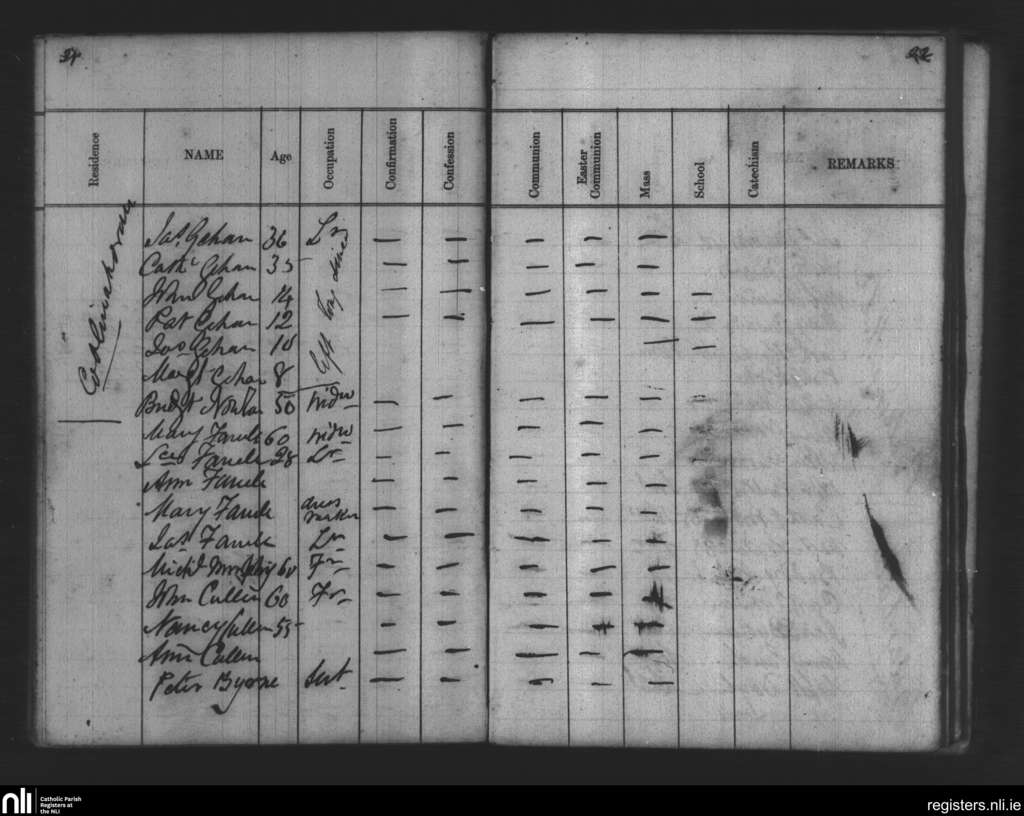 22
Residence NAME Age Occupation Confirmation Confession Communion Easter Communion Mass School Catechism REMARKS
Jas. Gehan 36 Lr — — — — —
Cathe Gehan 35 — — — — —
John Gehan 14 — — — — — —
Pat Gehan 12 — — — — — —
Jas Gehan 10 — —
Margt Gehan 8
left
Bridgt Nowlan 50 Widw — — — — —
Mary 60 Widw — — — — —
28 Lr — — — — —
Ann — — — — —
Mary dress maker — — — — —
Jas Lr — — — — —
Michl Murphy 60 Fr — — — — —
John Cullen 60 Fr — — — — —
Nancy Cullen 55 — — — — —
Ann Cullen — — — — —
Peter Byrne Sert — — — — —
nli Catholic Parish
Registers at
the NLI
registers.nli.ie